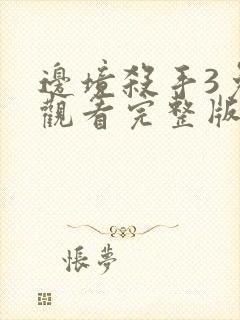 邊境殺手3免
觀看完整版
悵夢